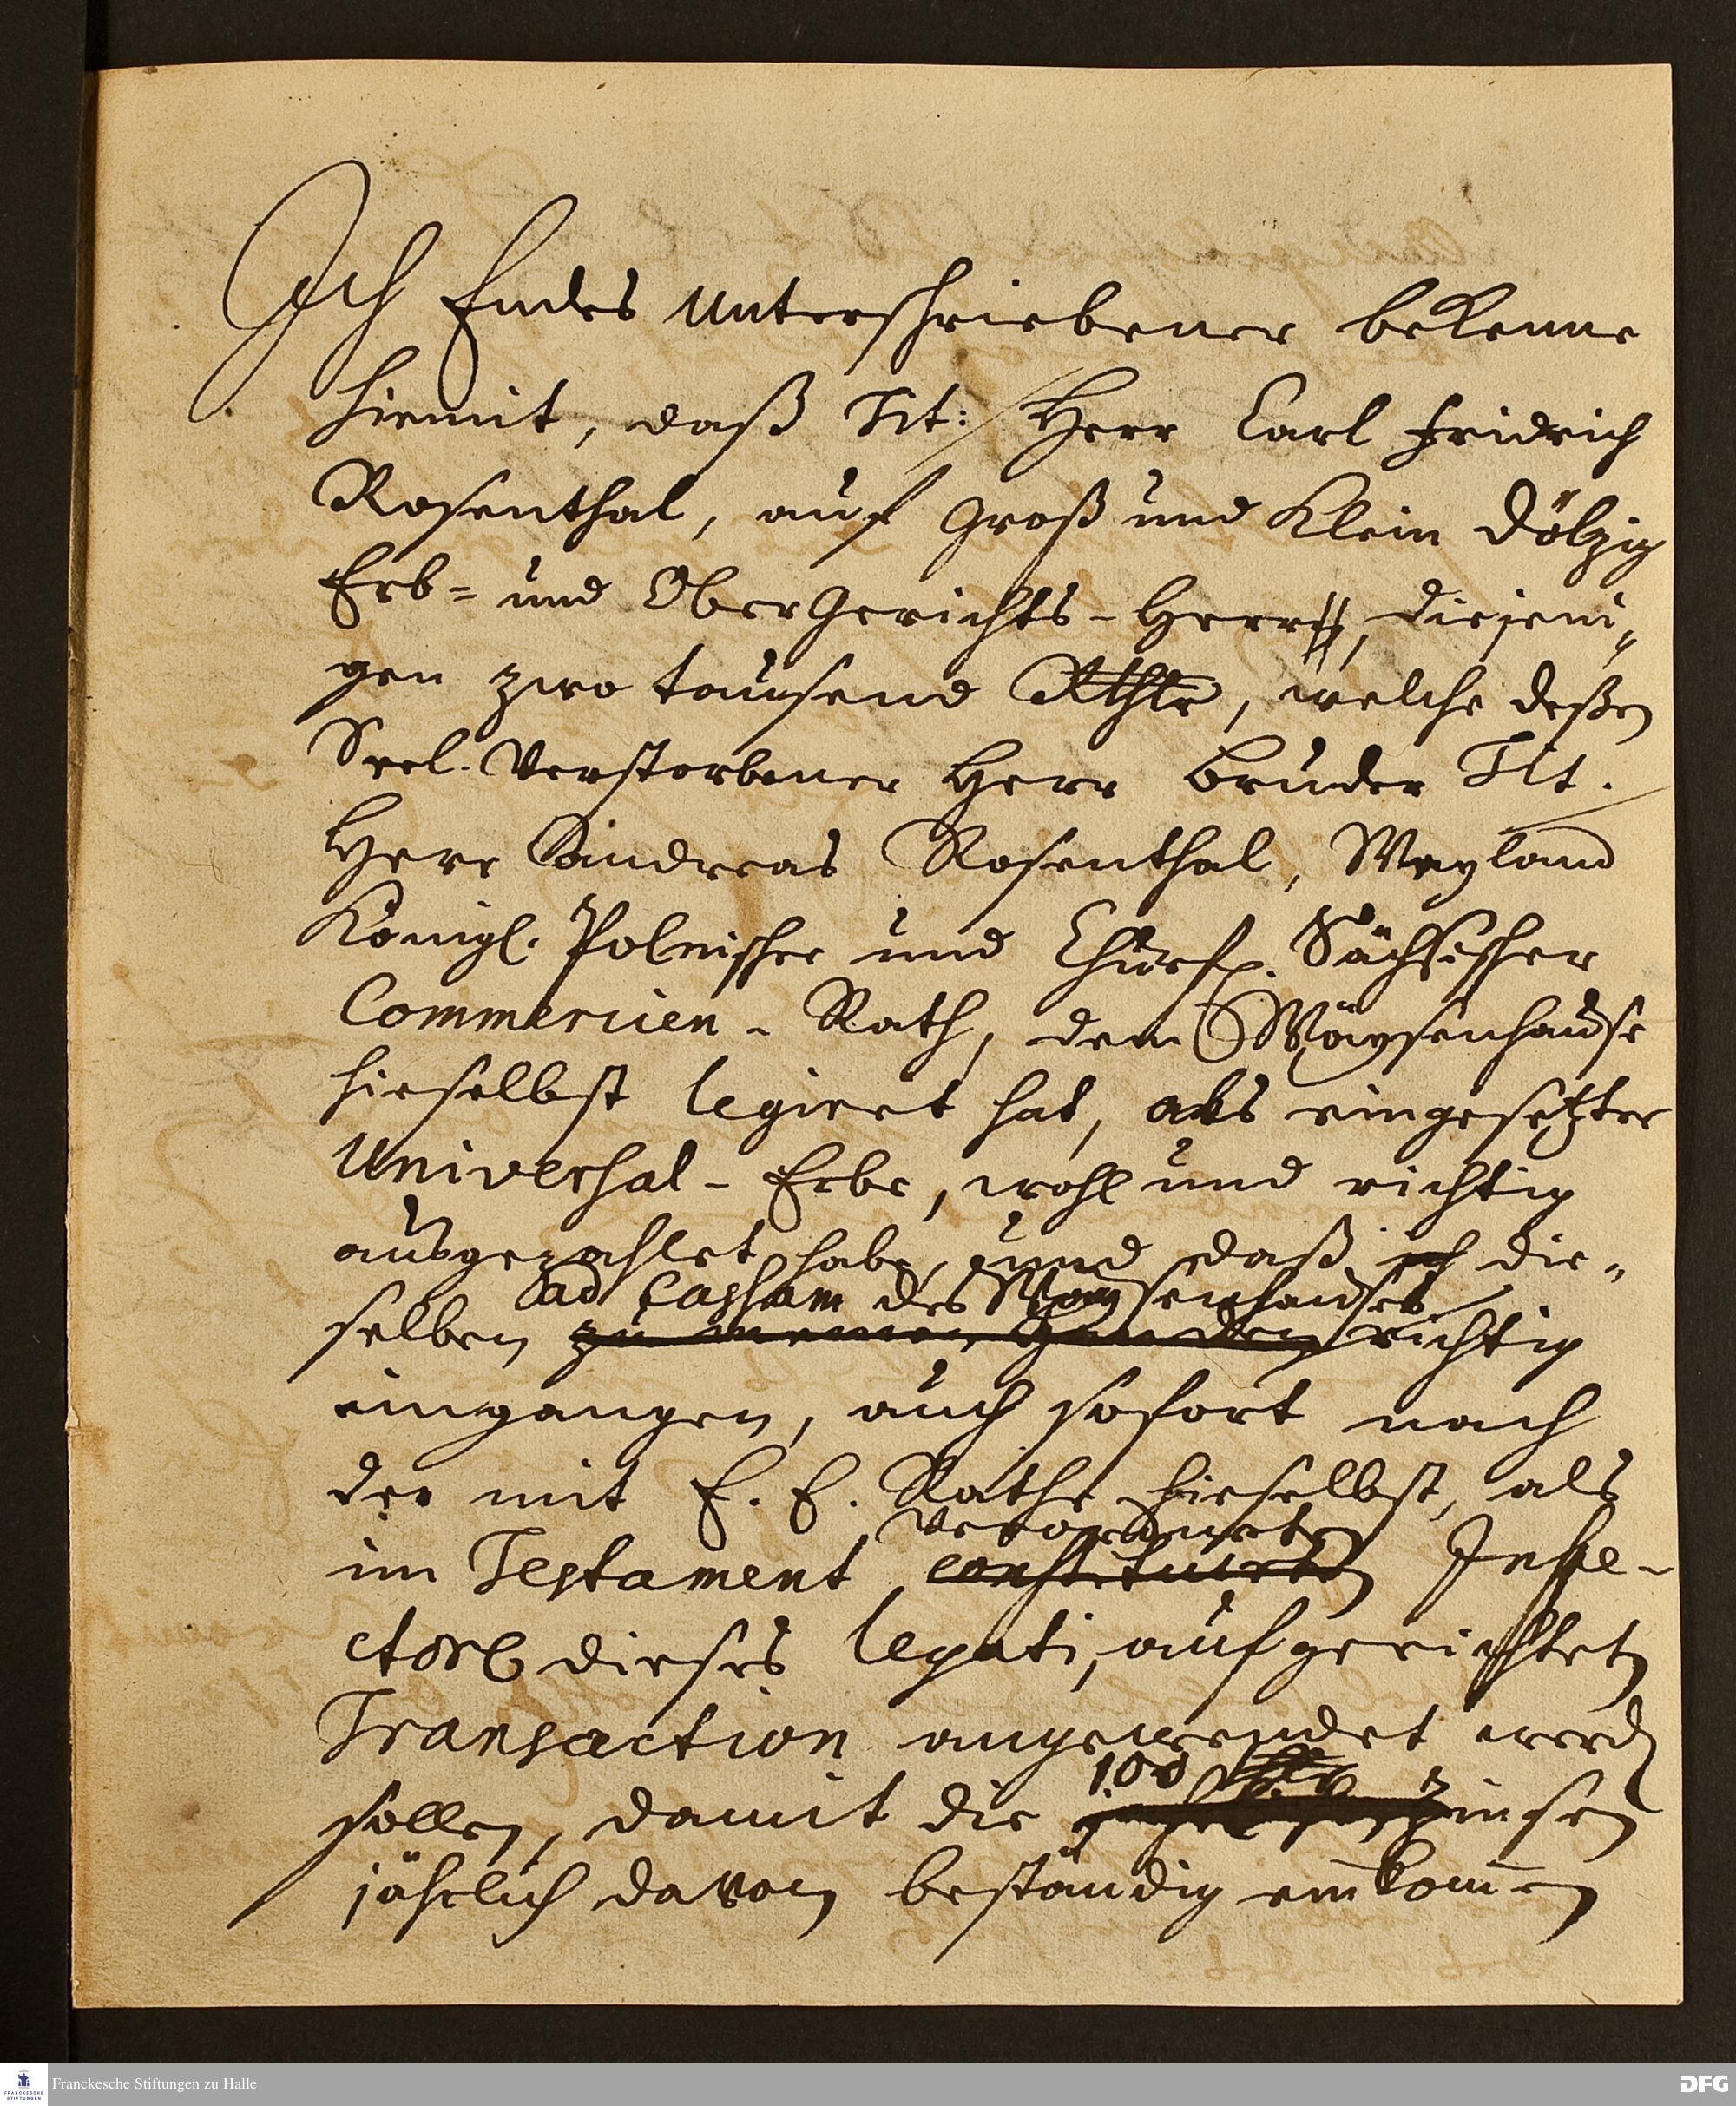 Ich Endes Unterschriebener bekenne
hiemit, daß Tit: Herr Carl Fridrich
Rosenthal, auf Groß und Klein Dölzig
Erb- und Ober Gerichts-Herr, diejeni-
gen zwo tausend Rthlr, welche deßen
Seel. Verstorbener Herr Bruder Tit.
Herr Andreas Rosenthal, Weyland
Königl. Polnischer und Churfl. Sächsischer
Commercien-Rath, dem Wäysenhause
hieselbst legiret hat, als eingesetzter
Universal-Erbe, wohl und richtig
ausgezahlet habe, und daß ich die-
ad Cassam des Waysenhauses
selben zu meinen Handen richtig
eingangen, auch sofort nach
der mit E. E. Rathe hieselbst, als
verordneten
im Testament constituirten Inspe-
ctore dieses legati, aufgerichteten
Transaction angewendet werden
100 Rthlr
sollen, damit die Zinsen
jährlich davon beständig einkommen
Franckesche Stiftungen zu Halle
DFG